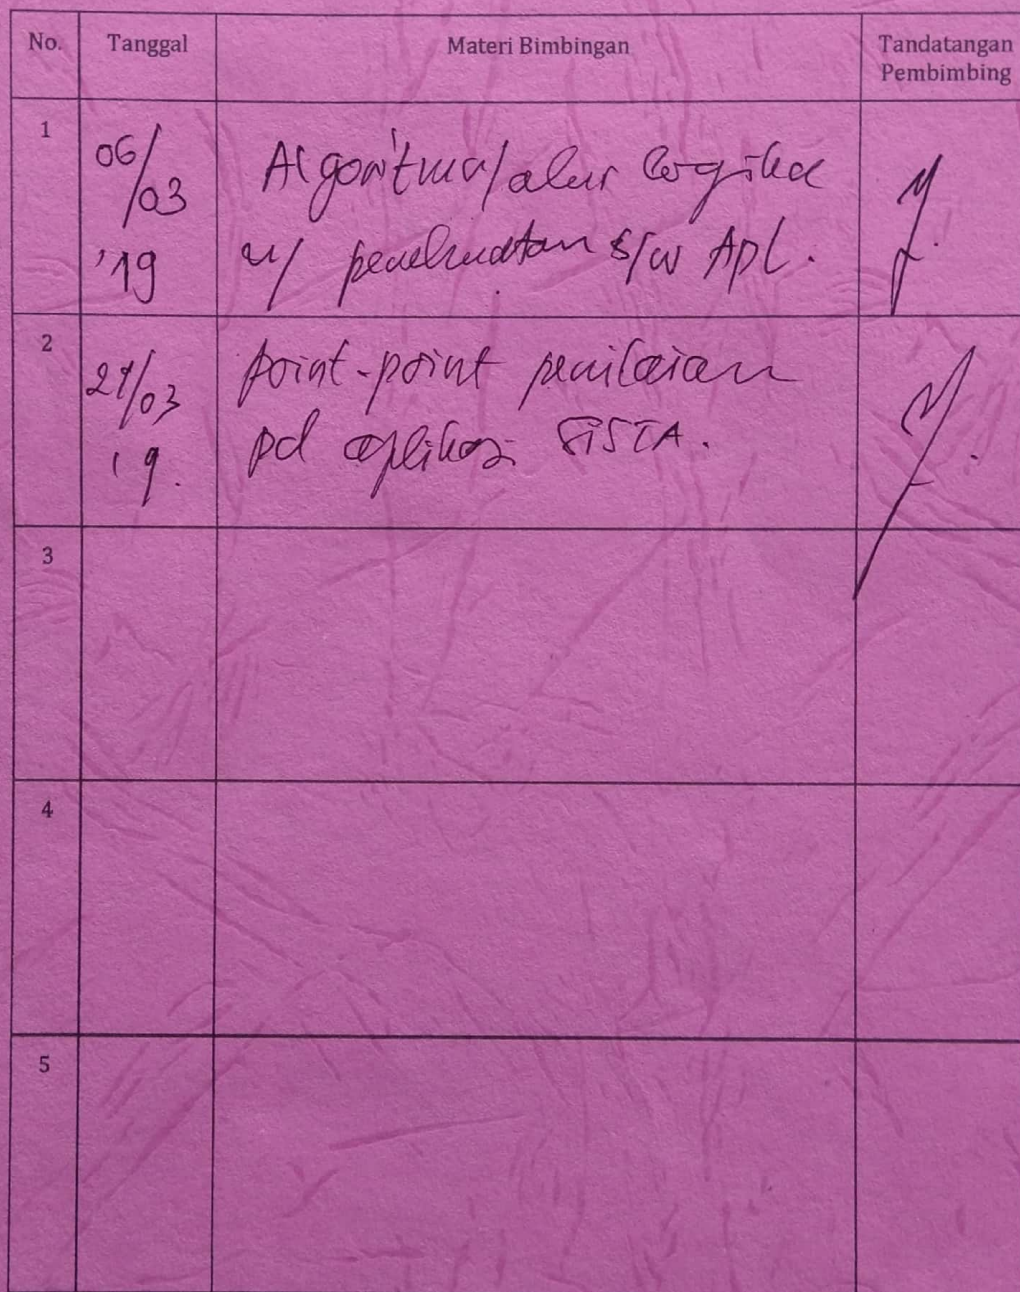 No. Tanggal Materi Bimbingan Tandatangan Pembimbing
1 06/03 '19 Algoritma/alur logika
u/ pembuatan s/w Apl.
2 /03 '19. point-point penilaian
pd aplikasi SISTA.
3
4
5